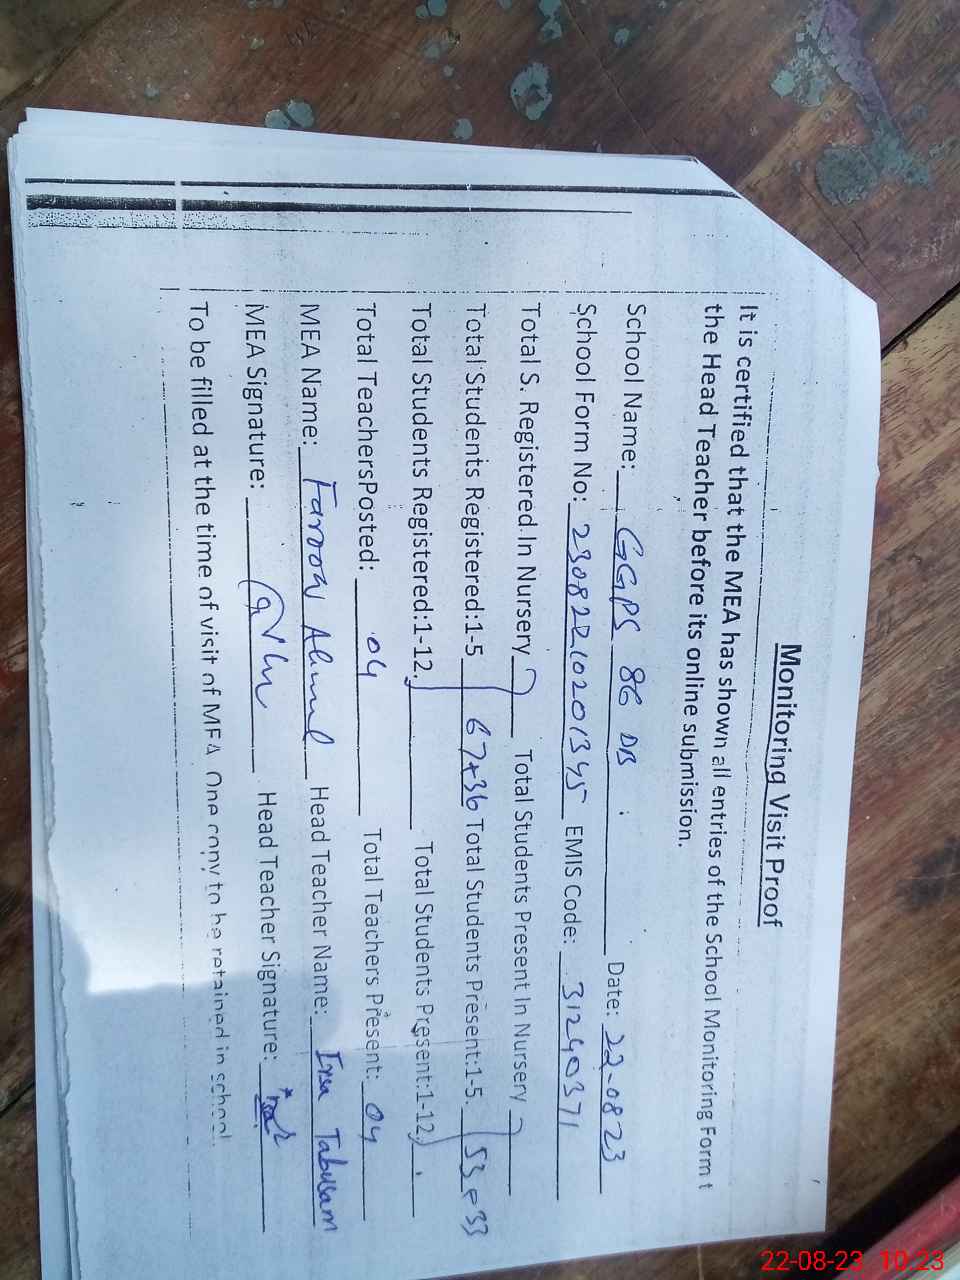 Monitoring Visit Proof
It is certified that the MEA has shown all entries of the School Monitoring Form t
the Head Teacher before its online submission.
School Name: GGPS 86 DB Date: 22-0823
School Form No: EMIS Code: 31240371
Total S. Registered.In Nursery Total Students Present In Nursery
Total Students Registered:1-5 67+36 Total Students Present:1-5. 53 = 33
Total Students Registered:1-12. Total Students Present:1-12.
Total TeachersPosted: 04 Total Teachers Present: 04
MEA Name: Farooq Ahmed Head Teacher Name: Tabusam
MEA Signature: Head Teacher Signature:
To be filled at the time of visit of MEA One copy to be retained in school
22-08-23 10:23